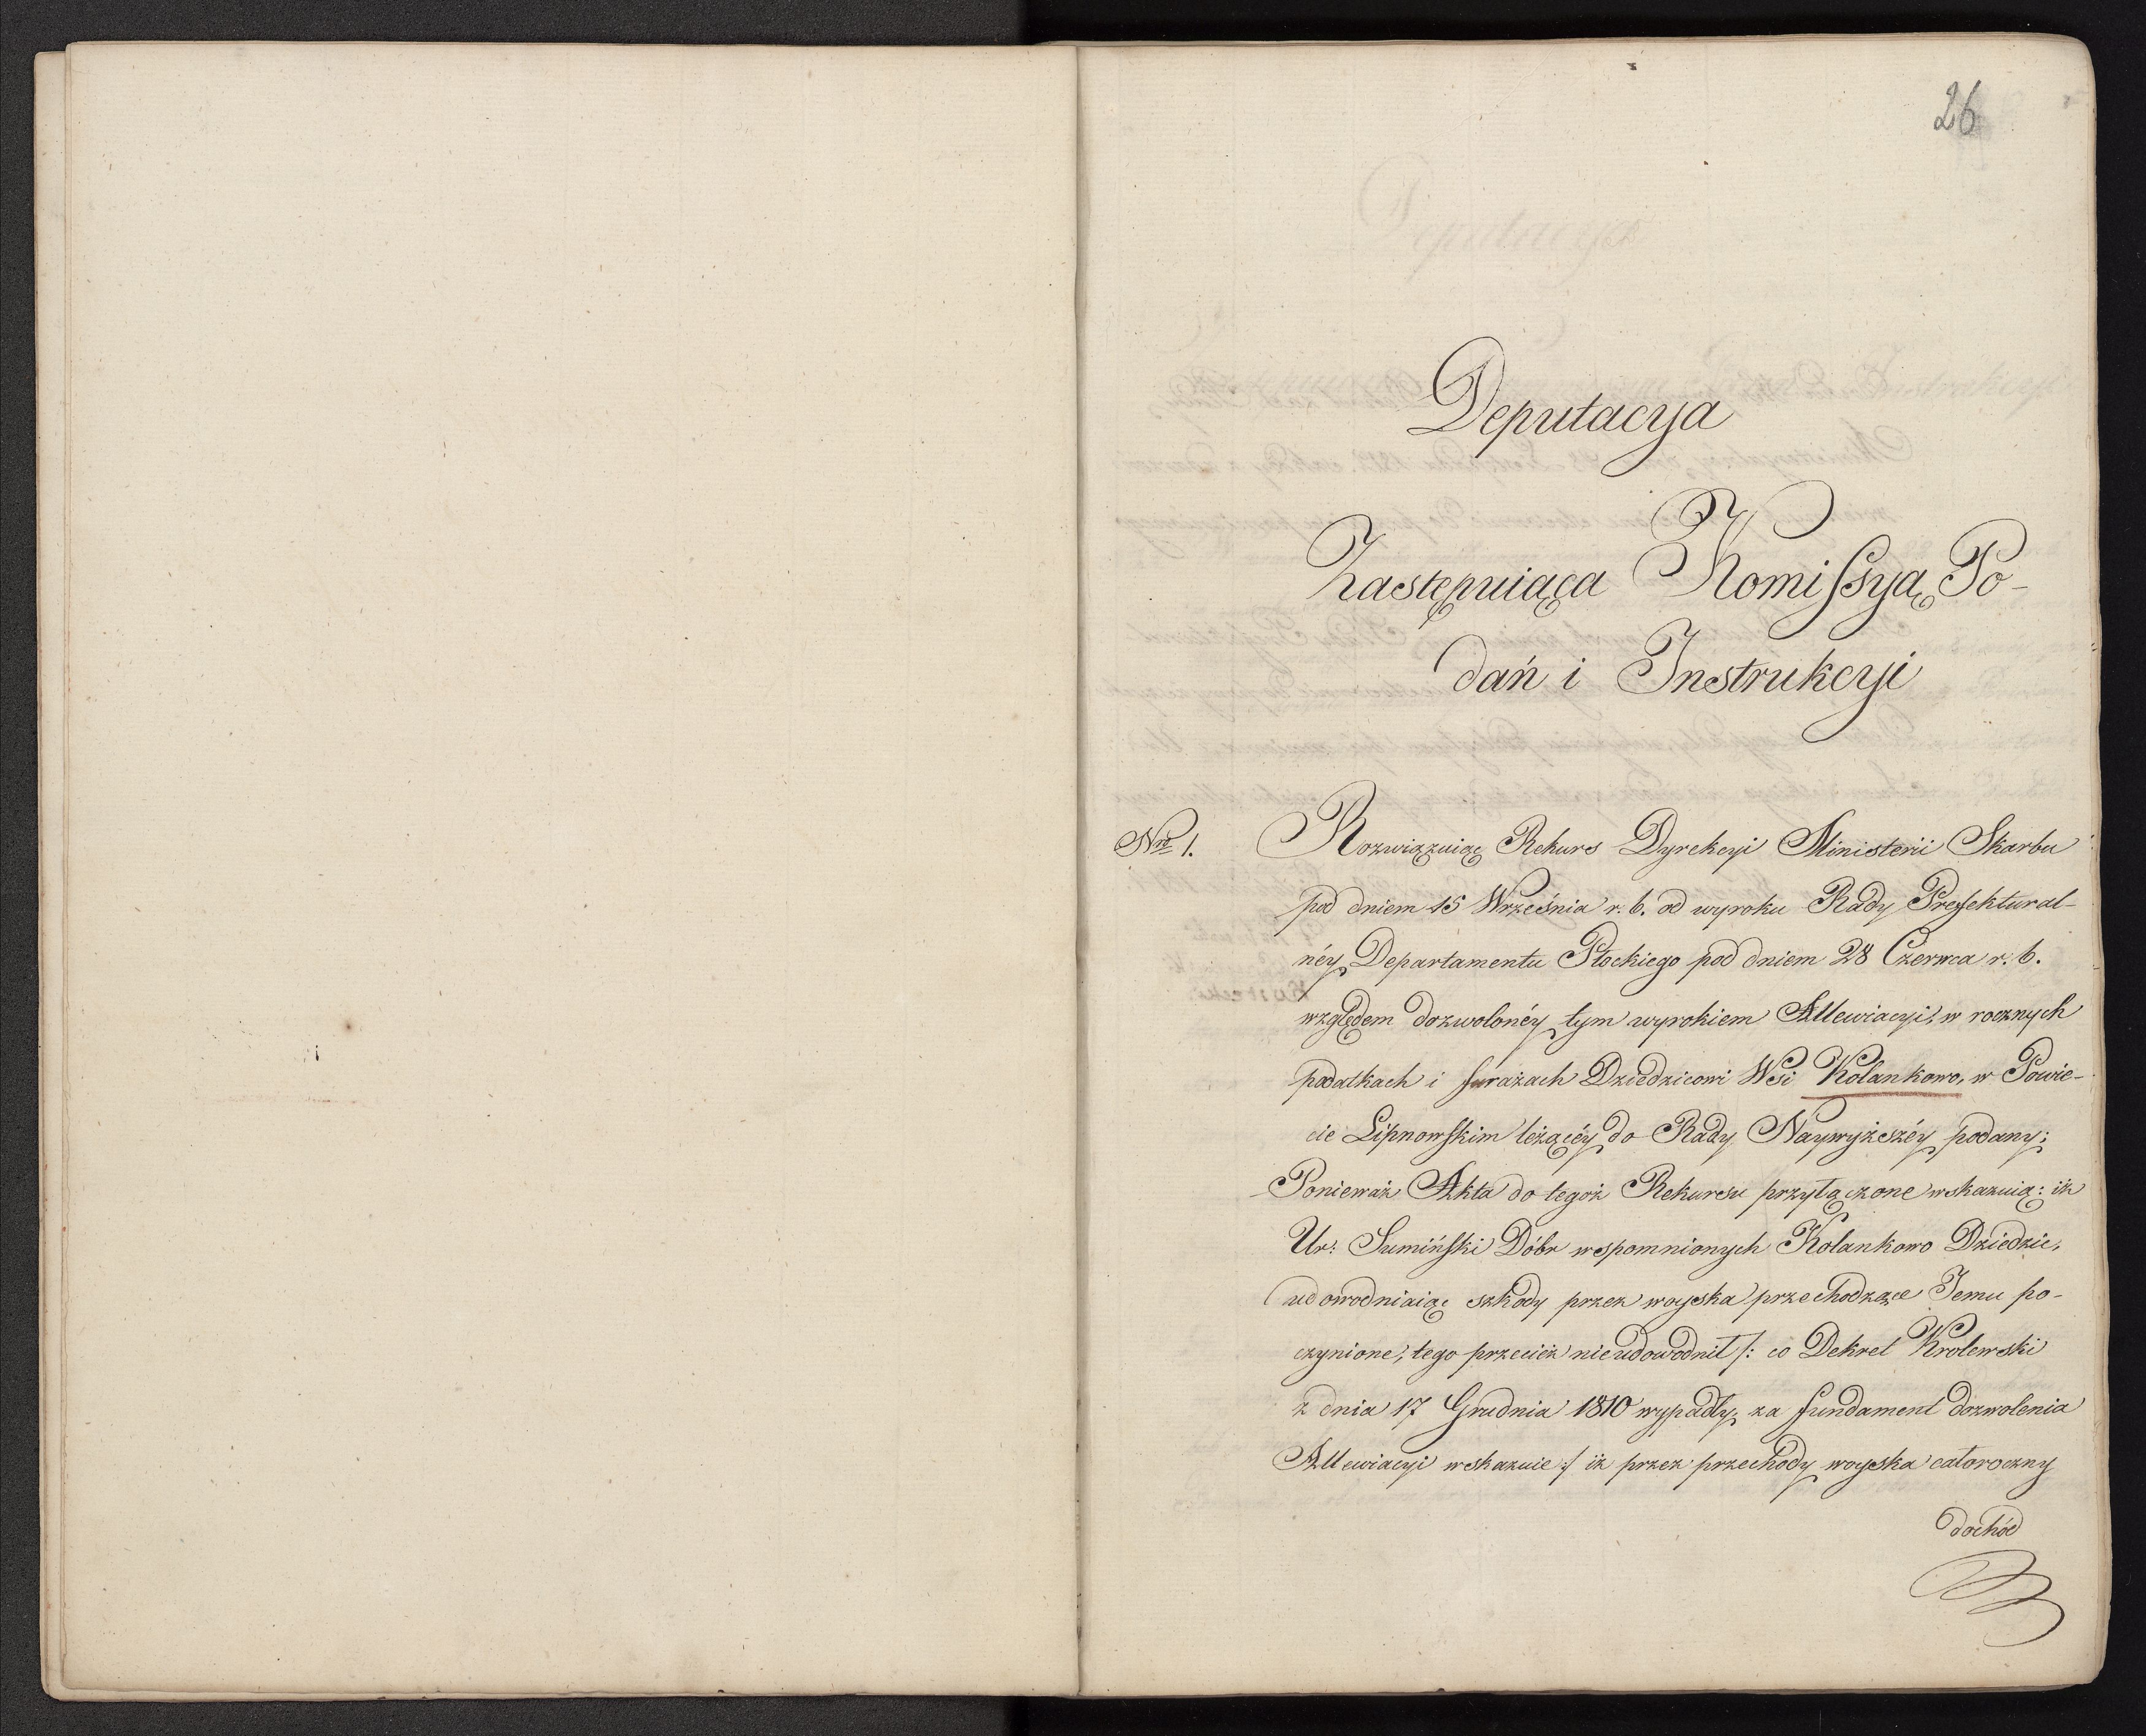 26
Deputacya
Zastępuiąca Komissyą Po-
dań i Instrukcyi
Nro 1. Rozwiązuiąc Rekurs Dyrekcyi Ministerii Skarbu
pod dniem 15 Września r. b. od wyroku Rady Prefektural-
néy Departamentu Płockiego pod dniem 28 Czerwca r. b.
względem dozwolonéy tym wyrokiem Allewiacyi, w rocznych
podatkach i furażach Dziedzicowi Wsi Kolankowo, w Powie-
cie Lipnowskim leżącéy do Rady Naywyższéy podany;
Ponieważ Akta do tegoż Rekursu przyłączone wskazuią: iż
Ur: Sumiński Dóbr wspomnionych Kolankowo Dziedzic,
udowodniaiąc szkody przez woyska przechodzące Jemu po-
czynione, tego przecież nieudowodnił /: co Dekret Krolewski
z dnia 17 Grudnia 1810 wypadły, za fundament dozwolenia
Allewiacyi wskazuie :/ iż przez przechody woyska całoroczny
dochód